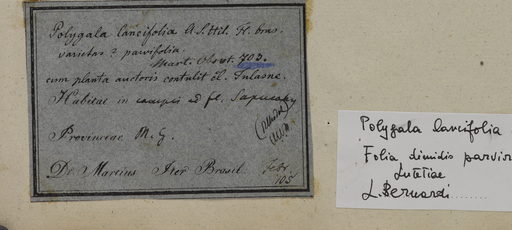 Polygala lancifolia A. S. Hil. Fl. bras.
varietas? parvifolia.
Mart. Obs. 703.
cum planta auctoris contulit Cl. Tulasne.
Habitat in campis ad fl. Sapucahy
Provinciae M. G.
Dr. Martius Iter Brasil. Febr
Polygala lancifolia
Folia dimidio parvior
Lutetiae
L. Bernardi